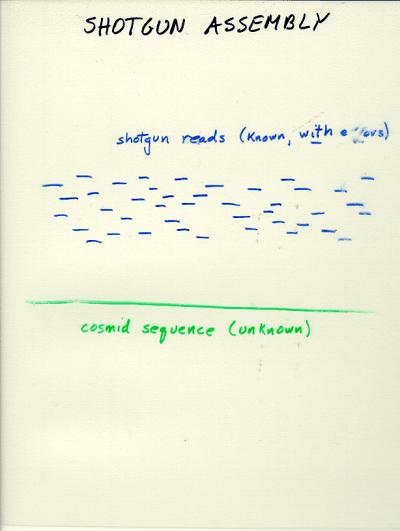 SHOTGUN ASSEMBLY
shotgun reads (known, with errors)
cosmid sequence (unknown)